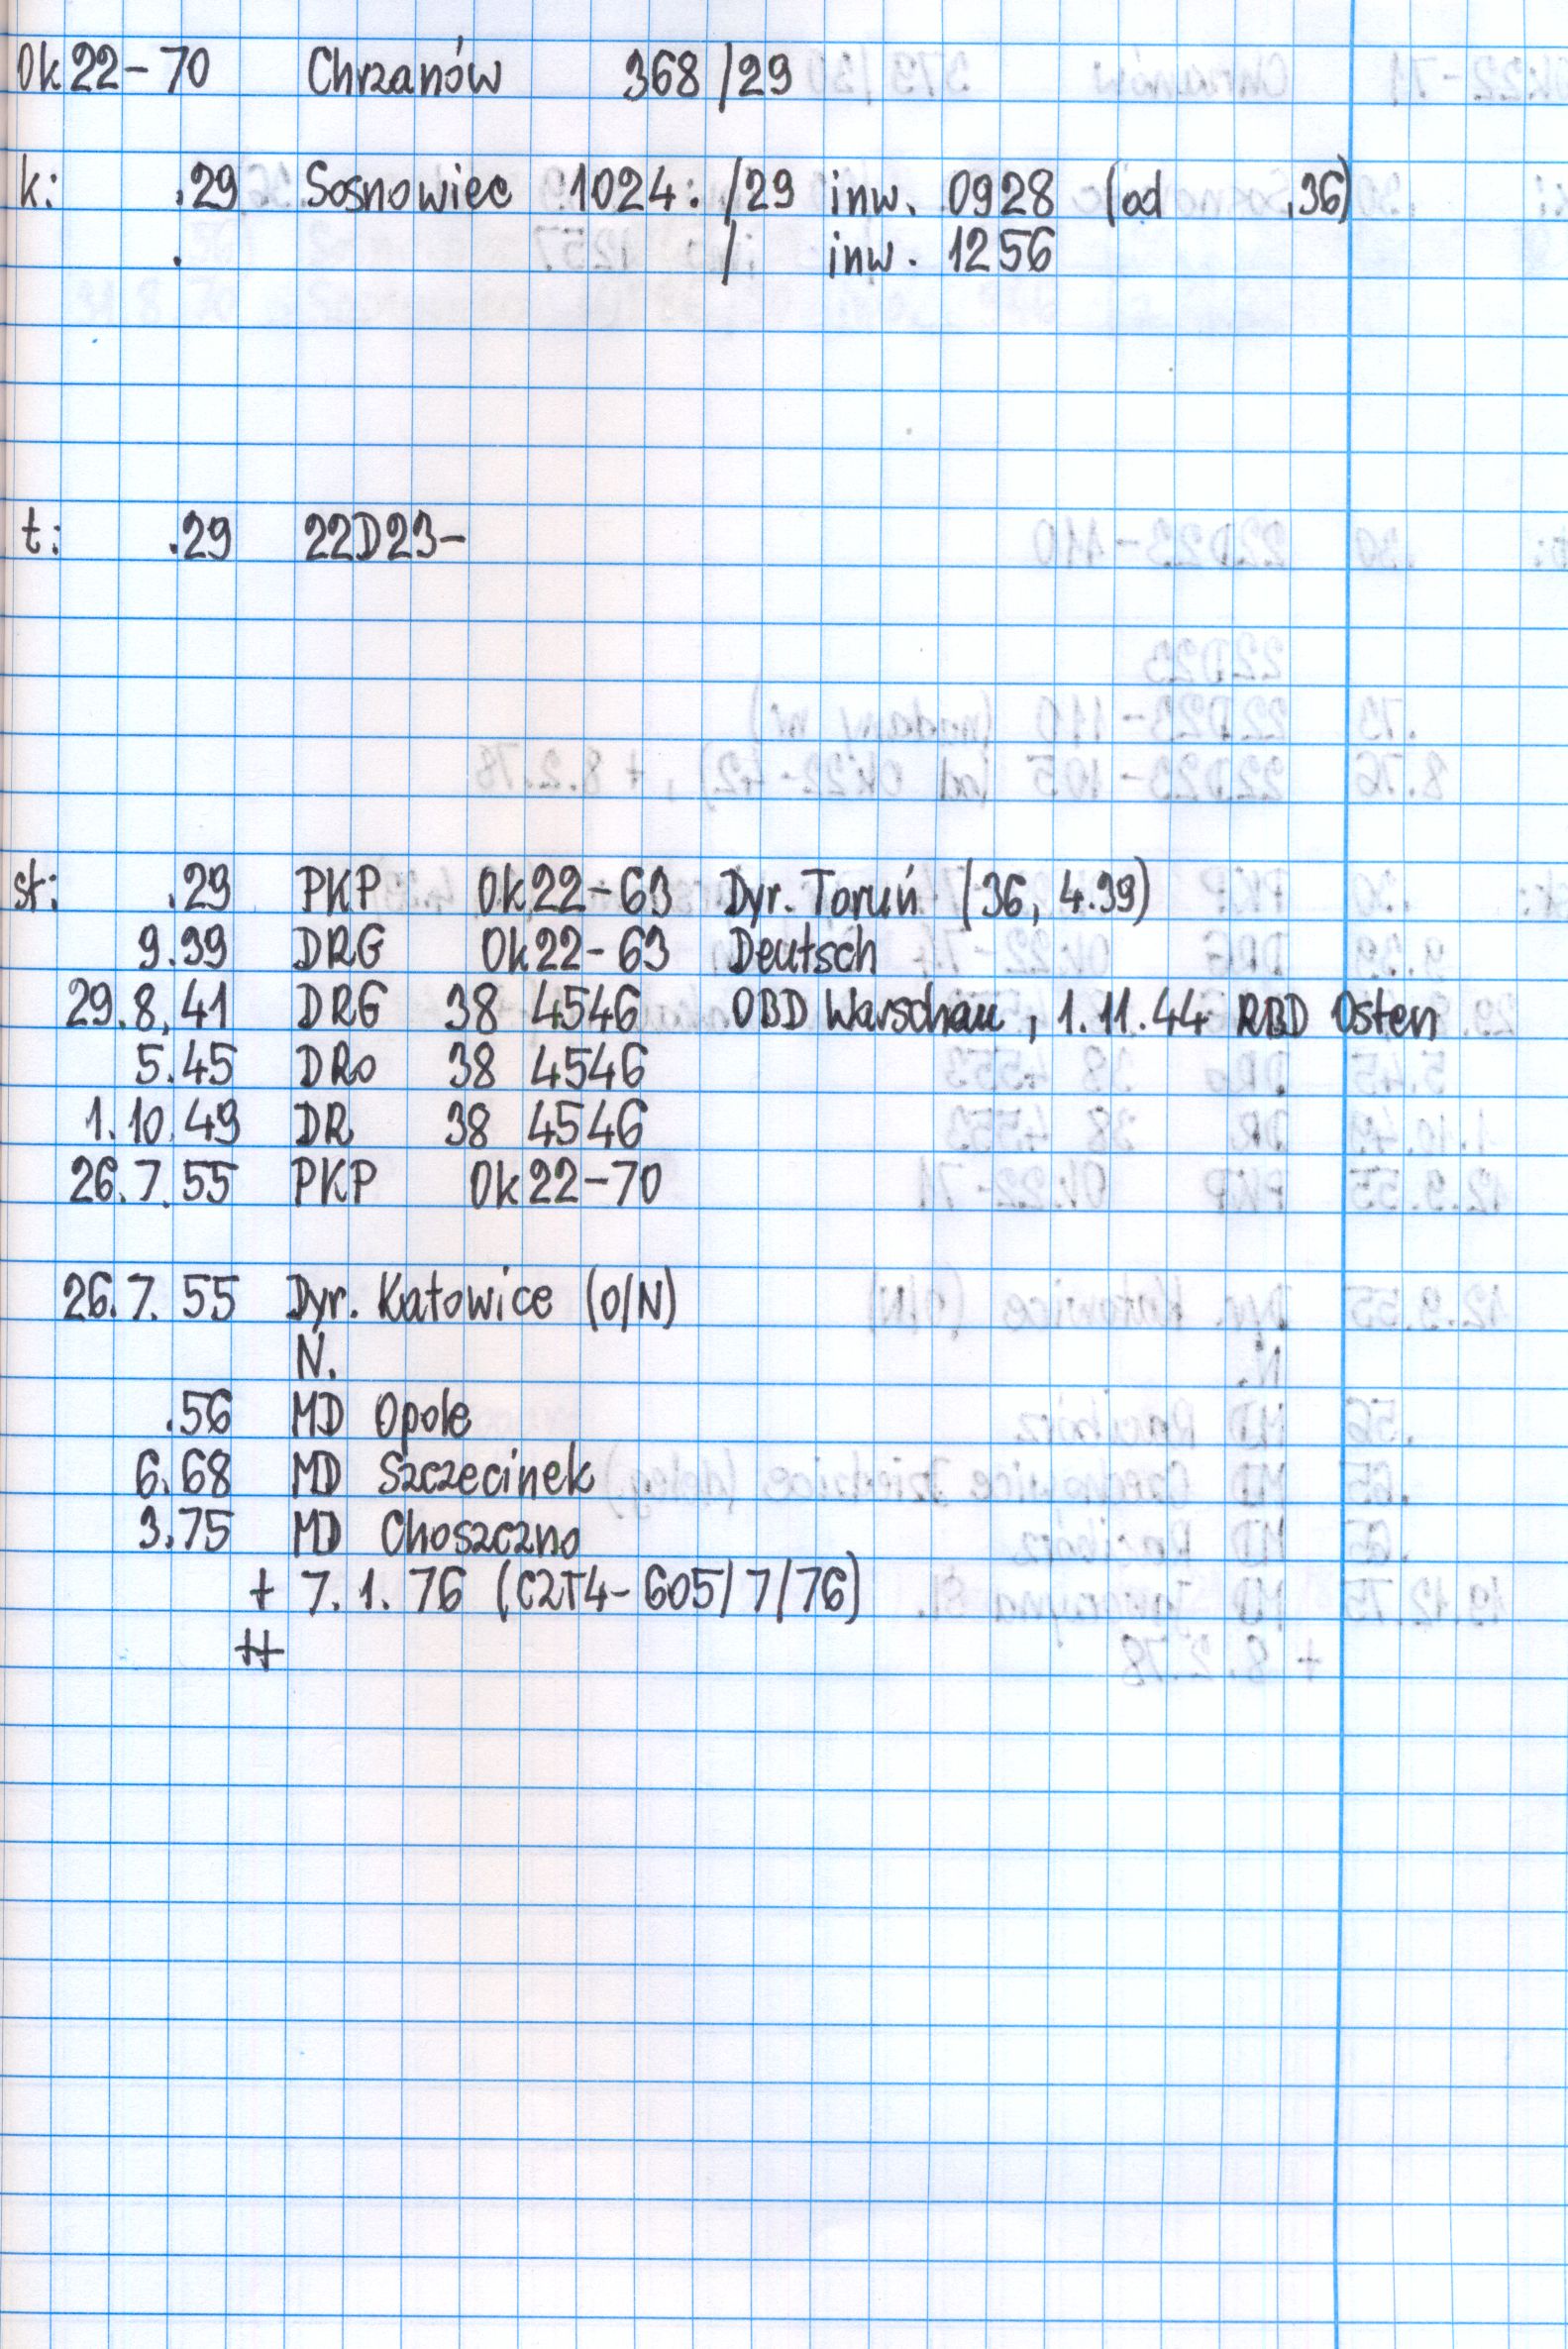 Ok22-70 Chrzanów 368/29
k: .29 Sosnowiec 1024: /29 inw. 0928 (od .36)
. / inw. 1256
t: .29 22D23-
st: .29 PKP Ok22-63 Dyr. Toruń (36, 4.39)
9.39 DRG Ok22-63 Deutsch
29.8.41 DRG 38 4546 OBD Warschau, 1.11.44 RBD Osten
5.45 DRo 38 4546
1.10.49 DR 38 4546
26.7.55 PKP Ok22-70
26.7.55 Dyr. Katowice (O/N)
N.
.56 MD Opole
6.68 MD Szczecinek
3.75 MD Choszczno
+ 7.1.76 (C2T4-605/7/76)
++